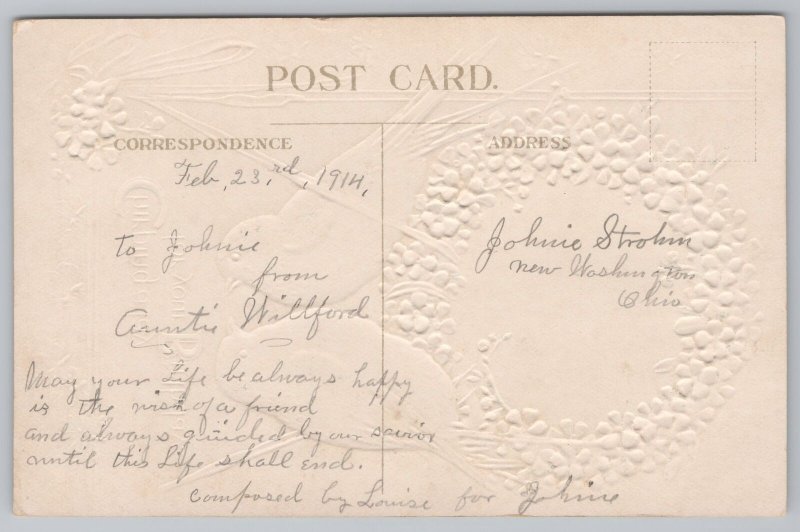 POST CARD.
CORRESPONDENCE
ADDRESS
Feb, 23,rd, 1914,
to Johnie
from
Auntie Willford
Johnie Strohm
new Washington
Ohio
May your Life be always happy
is the wish of a friend
and always guided by our savior
until this Life shall end.
composed by Louise for Johnie